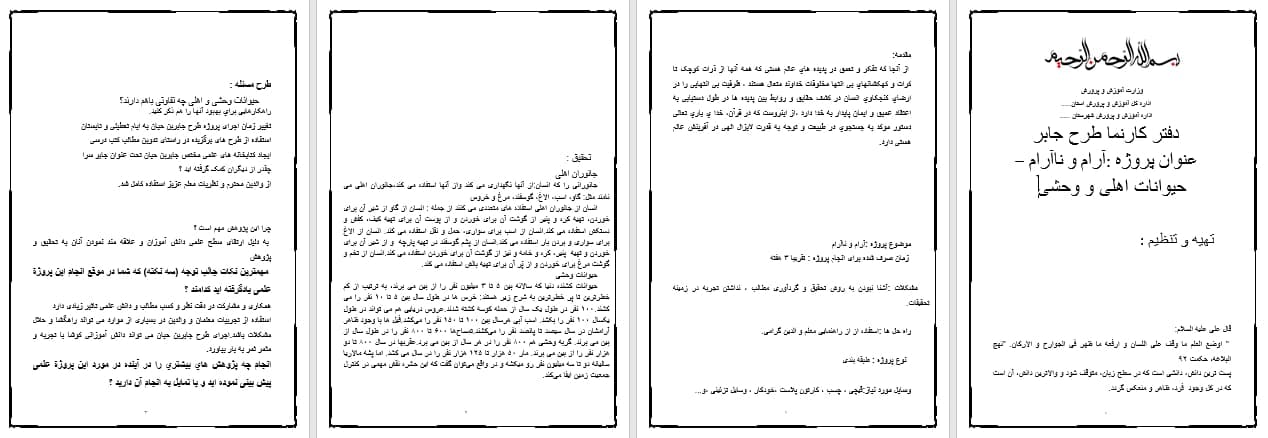 بسم الله الرحمن الرحیم
وزارت آموزش و پرورش
اداره کل آموزش و پرورش استان.....
اداره آموزش و پرورش شهرستان .....
دفتر کارنما طرح جابر
عنوان پروژه :آرام و ناآرام –
حیوانات اهلی و وحشی
تهیه و تنظیم :
قال علی علیه السلام:
" اوضع العلم ما وقف علی اللسان و ارفعه ما ظهر فی الجوارح و الارکان. "نهج
البلاغه، حکمت ۹۲
پست ترین دانش، دانشی است که در سطح زبان، متوقف شود و والاترین دانش، آن است
که در کل وجود فرد، ظاهر و منعکس گردد.
مقدمه:
از آنجا که تفکر و تعمق در پدیده هاي عالم هستی که همه آنها از ذرات کوچک تا
کرات و کهکشانهاي بی انتها مخلوقات خداوند متعال هستند ، ظرفیت بی انتهایی را در
ارضاي کنجکاوي انسان در کشف حقایق و روابط بین پدیده ها در طول دستیابی به
اعتقاد عمیق و ایمان پایدار به خدا دارد ،از اینروست که در قرآن، خدا ي باري تعالی
دستور موکد به جستجوي در طبیعت و توجه به قدرت لایزال الهی در آفرینش عالم
هستی دارد.
موضوع پروژه :آرام و ناآرام
زمان صرف شده برای انجام پروژه : تقریبا ۳ هفته
مشکلات :آشنا نبودن به روش تحقیق و گردآوری مطالب ، نداشتن تجربه در زمینه
تحقیقات.
راه حل ها :استفاده از از راهنمایی معلم و الدین گرامی.
نوع پروژه : طبقه بندی
وسایل مورد نیاز:قیچی ، چسب ، کارتون پلاست ،خودکار ، وسایل تزئینی ،و...
تحقیق :
جانوران اهلی
جانورانی را که انسان:از آنها نگهداری می کند واز آنها استفاده می کند،جانوران اهلی می
نامند مثل: گاو، اسب، الاغ، گوسفند، مرغ و خروس
انسان از جانوران اهلی استفاده های متعددی می کنند از جمله : انسان از گاو از شیر آن برای
خوردن، تهیه کره و پنیر از گوشت آن برای خوردن و از پوست آن برای تهیه کیف، کفش و
دستکش استفاده می کند.انسان از اسب برای سواری، حمل و نقل استفاده می کند. انسان از الاغ
برای سواری و بردن بار استفاده می کند.انسان از پشم گوسفند در تهیه پارچه و از شیر آن برای
خوردن و تهیه پنیر، کره و خامه و نیز از گوشت آن برای خوردن استفاده می کند.انسان از تخم و
گوشت مرغ برای خوردن و از پر آن برای تهیه بالش استفاده می کند.
حیوانات وحشی
حیوانات کشنده دنیا که سالانه بین ۵ تا ۳ میلیون نفر را از بین می برند، به ترتیب از کم
خطرترین تا پر خطرترین به شرح زیر هستند: خرس ها در طول سال بین ۵ تا ۱۰ نفر را می
کشند.۱۰۰ نفر در طول یک سال از حمله کوسه کشته شدند.عروس دریایی هم می تواند در طول
یکسال ۱۰۰ نفر را بکشد. اسب آبی هرسال بین ۱۰۰ تا ۱۵۰ نفر را می‌کشد.فیل ها با وجود ظاهر
آرامشان در سال سیصد تا پانصد نفر را می‌کشند.تمساح‌ها ۶۰۰ تا ۸۰۰ نفر را در طول سال از
بین می برند. گربه وحشی هم ۸۰۰ نفر را در هر سال از بین می برد.عقربها در سال ۸۰۰ تا دو
هزار نفر را از بین می برند. مار ۵۰ هزار تا ۱۲۵ هزار نفر را در سال می کشد. اما پشه مالاریا
سالیانه دو تا سه میلیون نفر رو میکشه و در واقع می‌توان گفت که این حشره نقش مهمی در کنترل
جمعیت زمین ایفا می‌کند.
طرح مسئله :
حیوانات وحشی و اهلی چه تفاوتی باهم دارند؟
راهکارهایی براي بهبود آنها را هم ذکر کنید.
تغییر زمان اجراي پروژه طرح جابربن حیان به ایام تعطیلی و تابستان
استفاده از طرح هاي برگزیده در راستاي تدوین مطالب کتب درسی
ایجاد کتابخانه هاي علمی مختص جابربن حیان تحت عنوان جابر سرا
چقدر از دیگران کمک گرفته اید ؟
از والدین محترم و نظریات معلم عزیز استفاده کامل شد.
چرا این پژوهش مهم است ؟
به دلیل ارتقاي سطح علمی دانش آموزان و علاقه مند نمودن آنان به تحقیق و
پژوهش
مهمترین نکات جالب توجه (سه نکته) که شما در موقع انجام این پروژة
علمی یادگرفته اید کدامند ؟
همکاري و مشارکت در دقت نظر و کسب مطالب و دانش علمی تاثیر زیادي دارد
استفاده از تجربیات معلمان و والدین در بسیاري از موارد می تواند راهگشا و حلال
مشکلات باشد.اجراي طرح جابربن حیان می تواند دانش آموزانی کوشا با تجربه و
مثمر ثمر به بار بیاورد.
انجام چه پژوهش هاي بیشتري را در آینده در مورد این پروژة علمی
پیش بینی نموده اید و یا تمایل به انجام آن دارید ؟